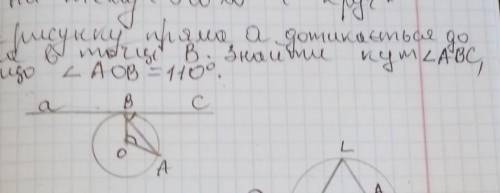 рисунку пряма a дотикається до
в точці B. Знайти кут ∠ABC,
∠AOB = 110°.
a B C
O
A
L
A